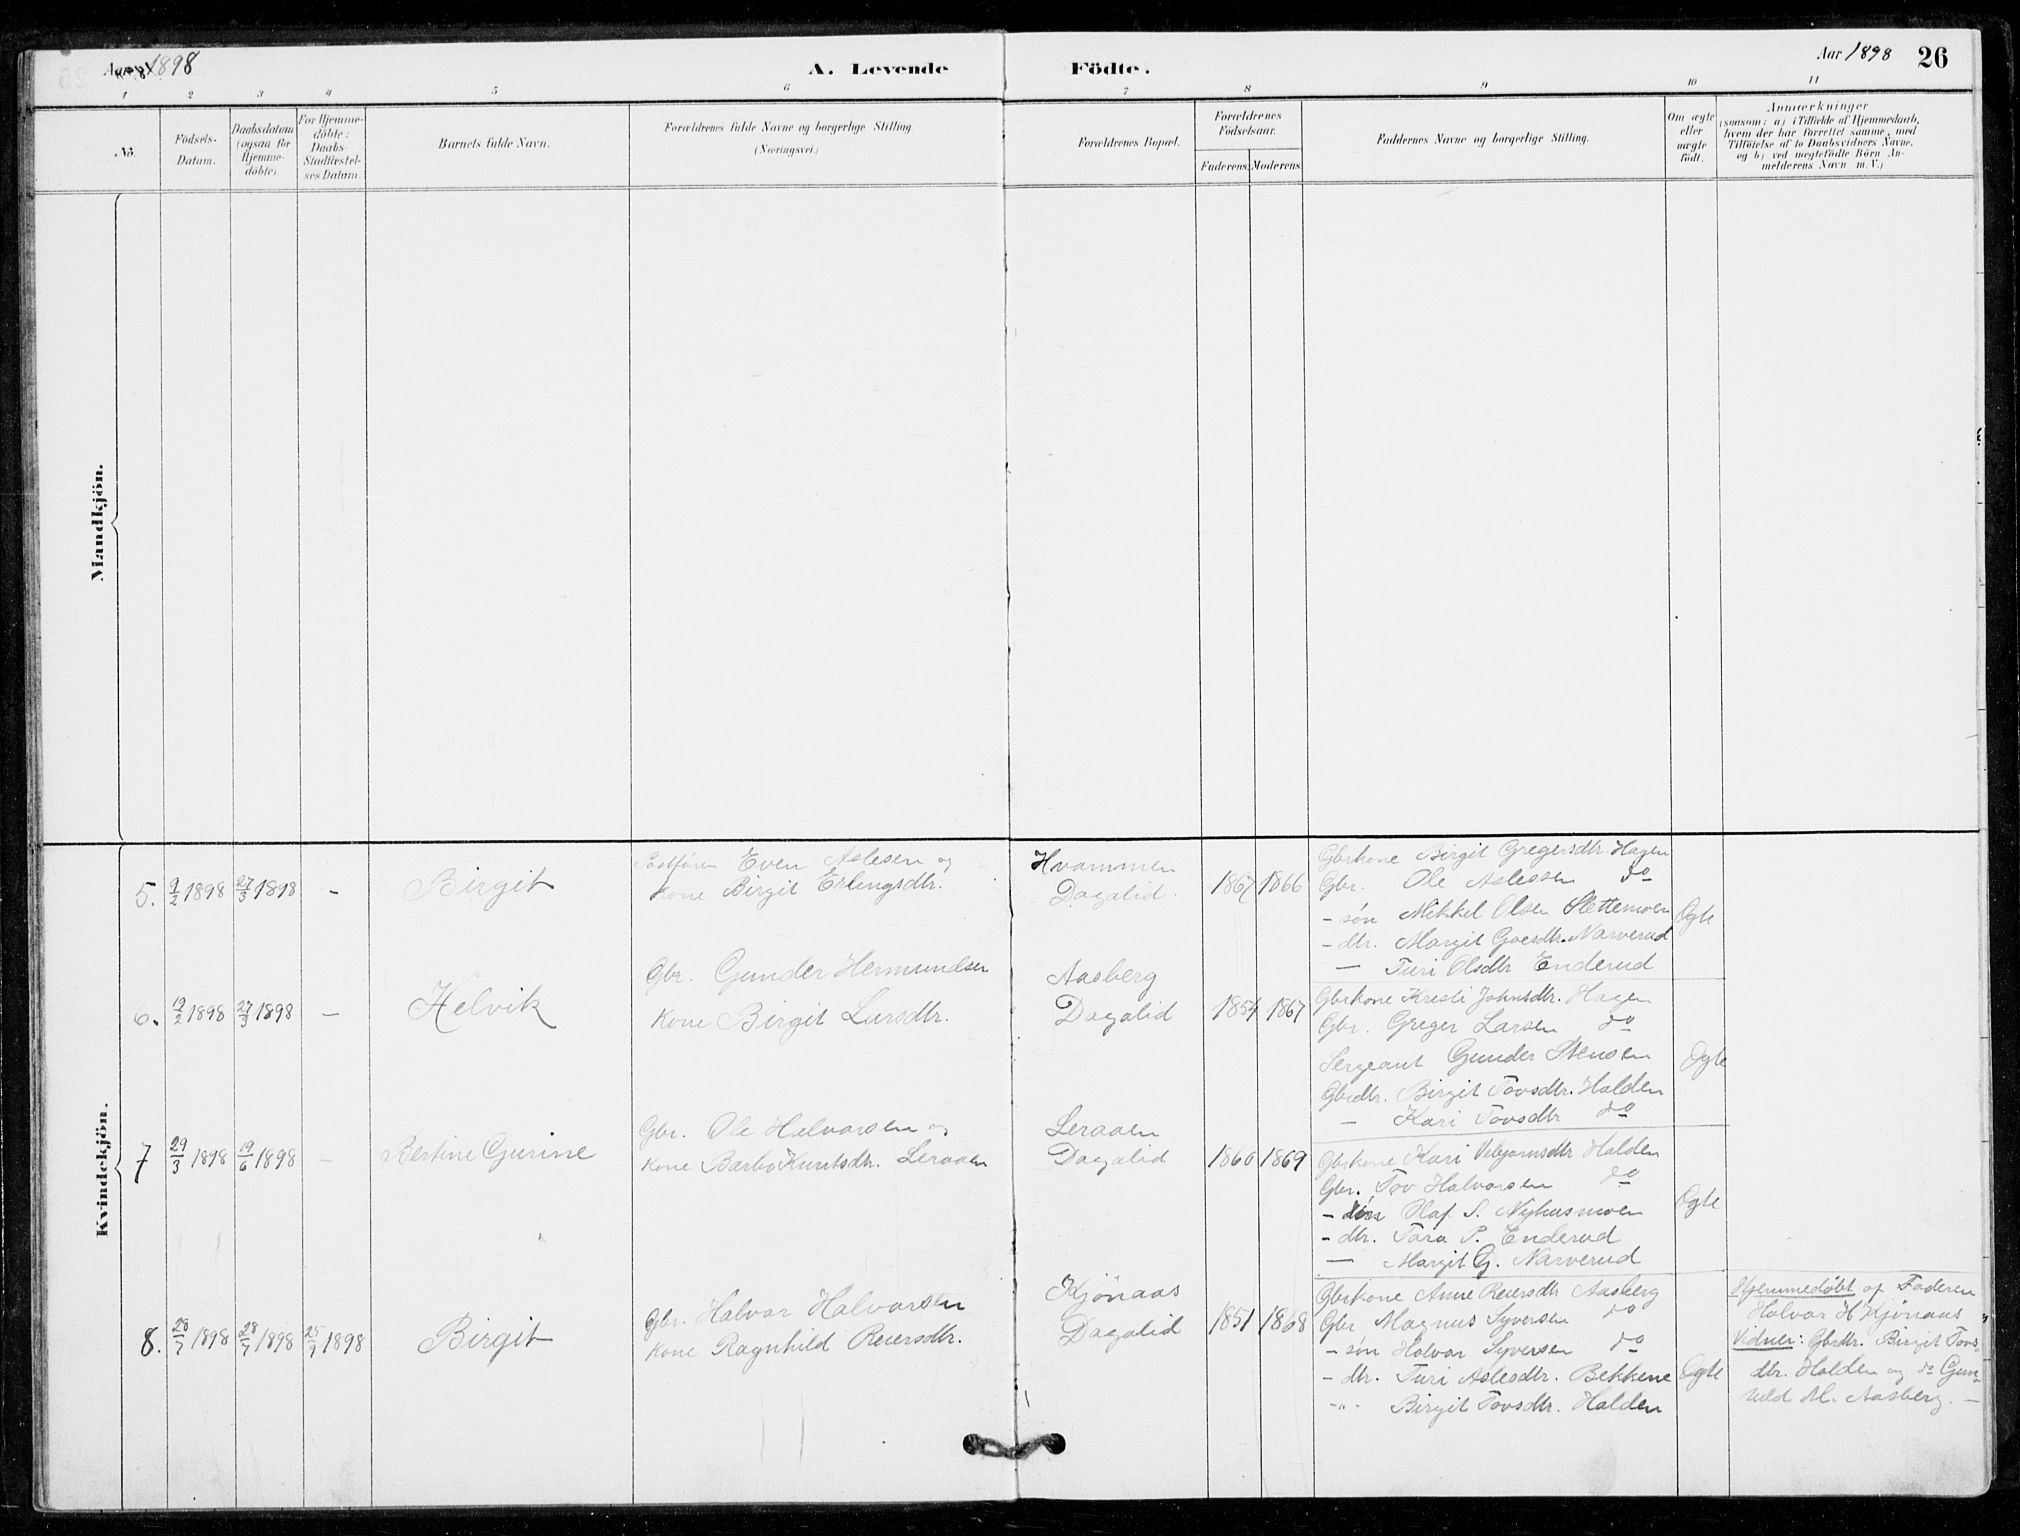 Aar 1898
A. Levende Födte.
Aar 1898 26
1 2 3 4 5 6 7 8 9 10 11
No.
Födsels-Datum.
Daabsdatum (ogsaa for Hjemme-döbte).
For Hjemme-döbte: Daabs-Stadfæstel-ses Datum.
Barnets fulde Navn.
Forældrenes fulde Navne og borgerlige Stilling.
(Næringsvei.)
Forældrenes Bopæl.
Forældrenes Födselsaar.
Faderens. Moderens.
Faddernes Navne og borgerlige Stilling.
Om ægte eller uægte födt.
Anmærkninger
(saasom: a) i Tilfælde af Hjemmedaab,
hvem der har forrettet samme, med
Tilföielse af to Daabsvidners Navne.
og b) ved uægtefödte Börn An-
melderens Navn m. V.)
Mandkjön.
Kvindekjön.
5. 9/2 1898 27/3 1898 - Birgit
Even Aslesen og
Kone Birgit Erlingsdtr.
Hvammen
Dagalid
1867 1866
Gbrkone Birgit Gregersdtr. Hagen
Gbr. Ole Aslesen do
- søn Mikkel Olsen Slettemoen
- dtr. Margit Goesdtr. Narverud
— Turi Olsdtr Enderud
Ægte
6. 19/2 1898 27/3 1898 - Helvik
Gbr. Gunder Hermundsen
Kone Birgit Larsdtr.
Aasberg
Dagalid
1854 1867
Gbrkone Kristi Johnsdtr. Hagen
Gbr. Greger Larsen do
Sergeant Gunder Stensen
Gbrdtr. Birgit Tovsdtr. Halden
— Kari Tovsdtr do
Ægte
7 29/3 1898 19/6 1898 - Bertine Gurine
Gbr. Ole Halvorsen og
Kone Barbo Knutsdtr. Leraaen
Leraaen
Dagalid
1860 1869
Gbrkone Kari Vebjørnsdtr Halden
Gbr. Tov Halvorsen do
- søn Olaf S. Nyhusmoen
- dtr. Tara P. Enderud
— Margit G. Narverud
Ægte
8. 28/7 1898 28/7 1898 25/9 1898 Birgit
Gbr. Halvor Halvorsen
Kone Ragnhild Reiersdtr.
Kjønaas
Dagalid
1851 1868
Gbrkone Anne Reiersdtr Aasberg
Gbr Magnus Syversen do
- søn Halvor Syversen do
- dtr. Turi Aslesdtr. Bekkene
-"- Birgit Tovsdtr. Halden
Ægte
Hjemmedøbt af Faderen
Halvor H Kjønaas
Vidner: Gbrdtr. Birgit Tovs-
dtr. Halden og do Gun-
hild M. Aasberg. —